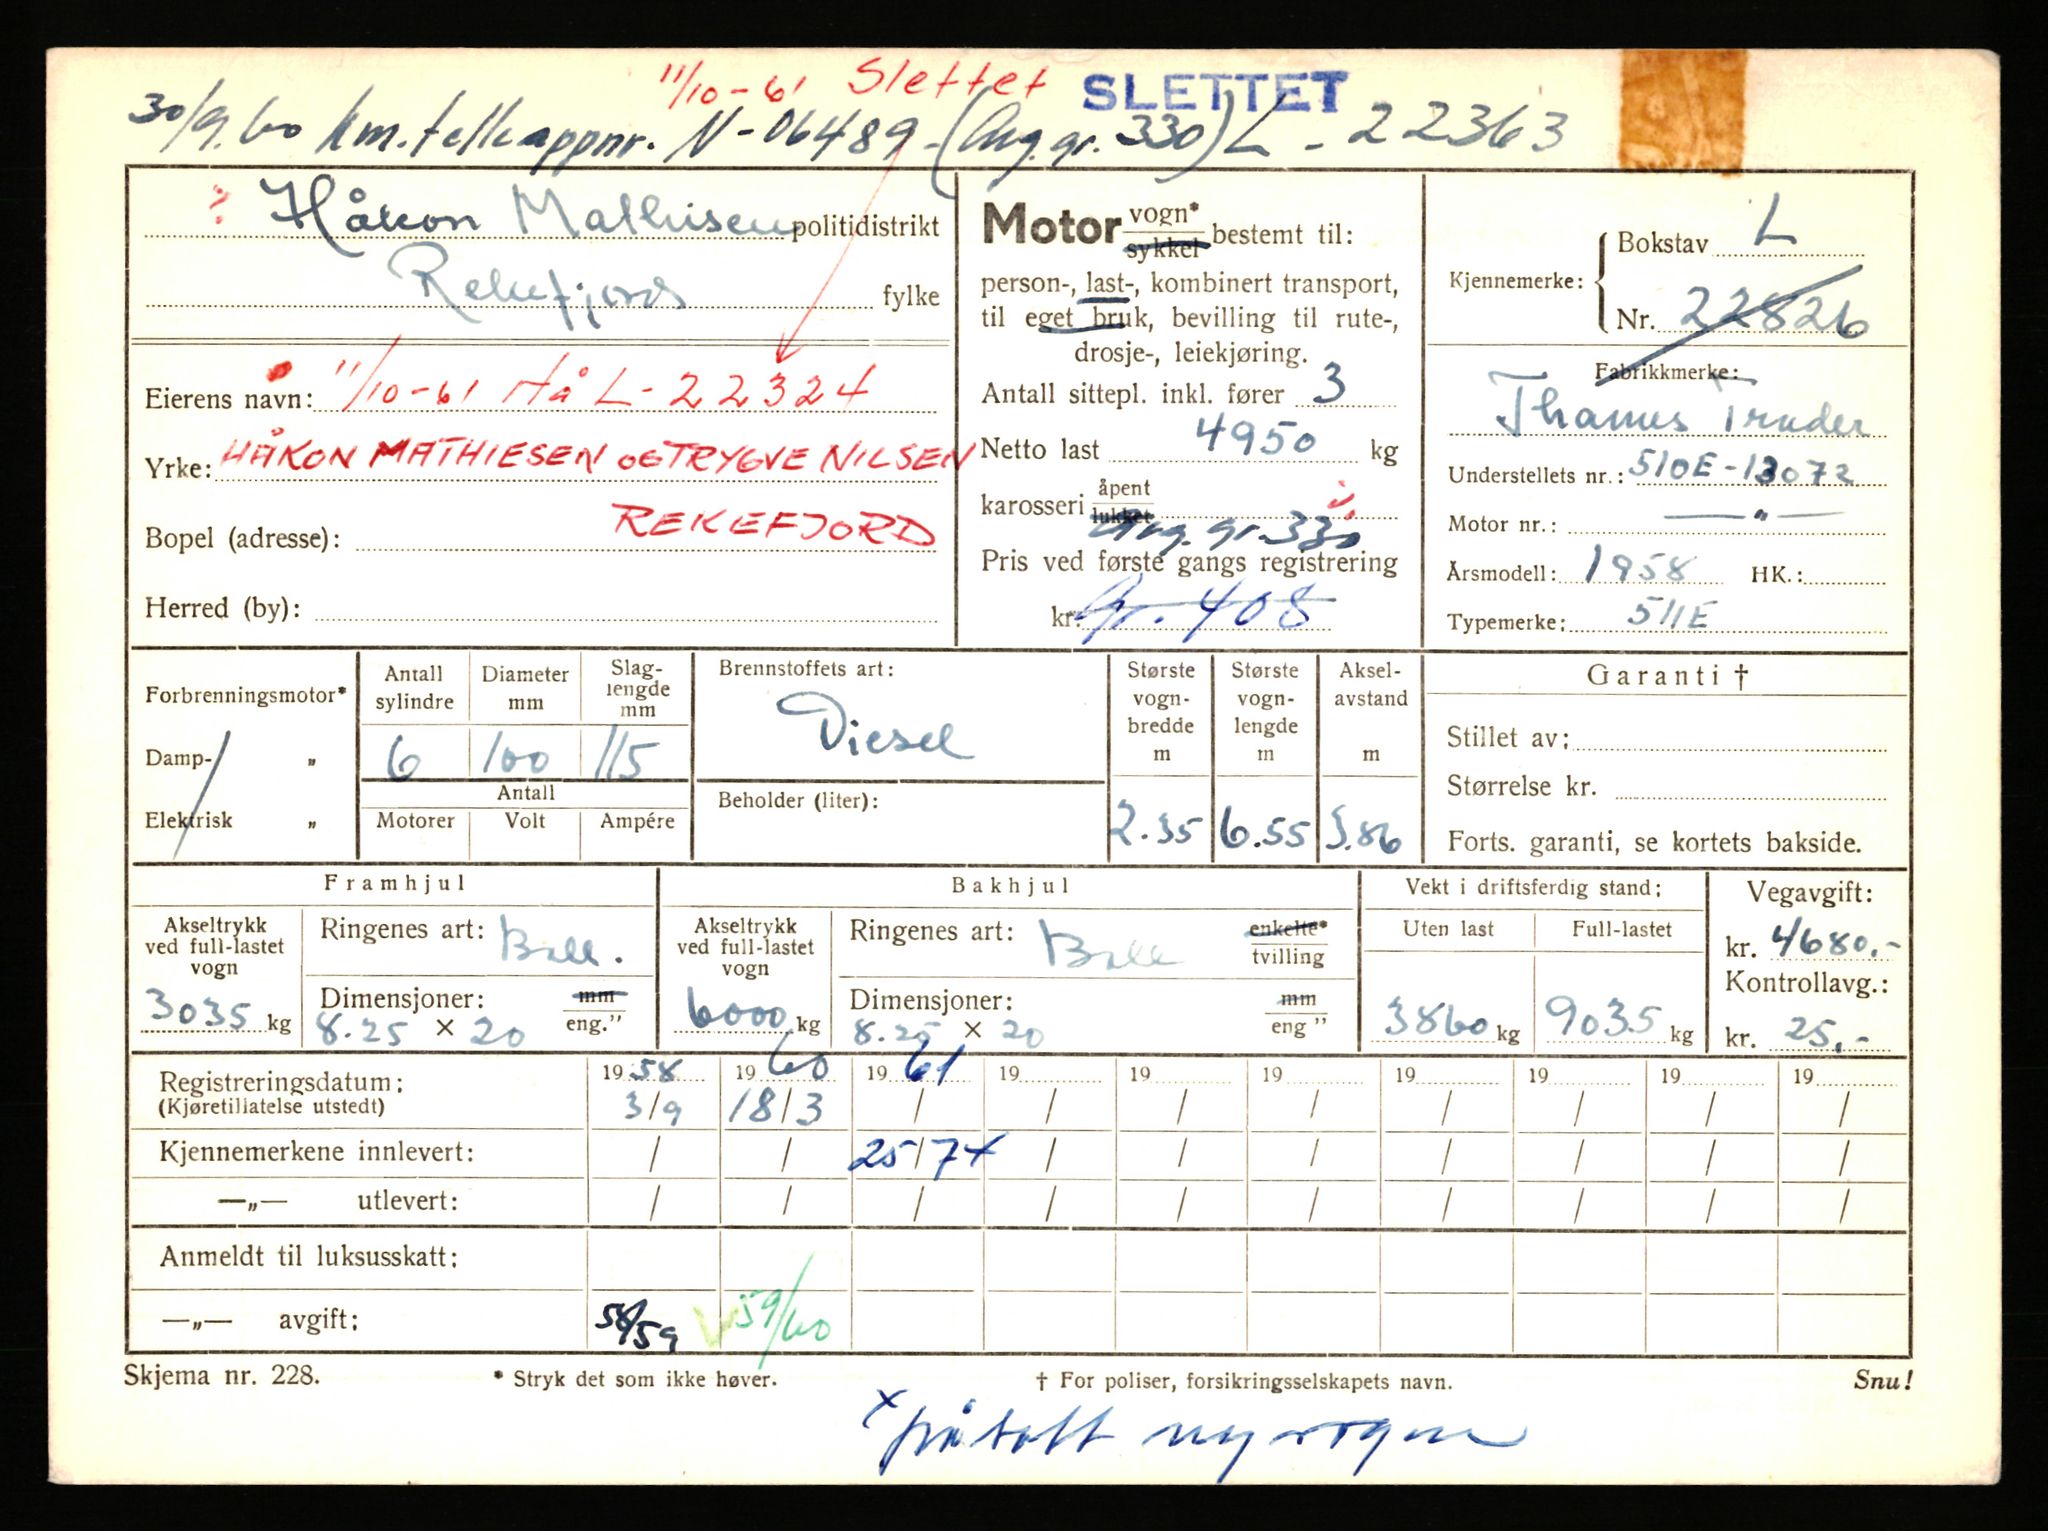 11/10-61 Slettet SLETTET
30/9.60 km.tellerappnr. N-06489-(Avg.gr. 330) L-22363
Håkon Mathisen politidistrikt
Rekefjord fylke
Eierens navn: 11/10-61 På L-22324
Yrke: HÅKON MATHIESEN OG TRYGVE NILSEN
Bopel (adresse): REKEFJORD
Herred (by):
Motor vogn* sykkel bestemt til:
person-, last-, kombinert transport,
til eget bruk, bevilling til rute-,
drosje-, leiekjøring.
Antall sittepl. inkl. fører 3
Netto last 4950 kg
karosseri åpent lukket
Avg. gr. 330
Pris ved første gangs registrering
kr. Gr. 408
Kjennemerke: Bokstav L
Nr. 22826
Fabrikkmerke:
Thames Trader
Understellets nr.: 510E-13072
Motor nr.: — " —
Årsmodell: 1958 HK.:
Typemerke: 511E
Forbrenningsmotor*
Damp- „
Elektrisk „
Antall sylindre Diameter mm Slaglengde mm
6 100 115
Antall
Motorer Volt Ampére
Brennstoffets art:
Diesel
Beholder (liter):
Største vognbredde m Største vognlengde m Akselavstand m
2.35 6.55 3.86
Garanti †
Stillet av:
Størrelse kr.
Forts. garanti, se kortets bakside.
Framhjul
Akseltrykk ved full-lastet vogn
3035 kg
Ringenes art: Ball.
Dimensjoner: mm
8.25 × 20 eng."
Bakhjul
Akseltrykk ved full-lastet vogn
6000 kg
Ringenes art: Ball enkelte* tvilling
Dimensjoner: mm
8.25 × 20 eng "
Vekt i driftsferdig stand:
Uten last Full-lastet
3860 kg 9035 kg
Vegavgift:
kr. 4680.-
Kontrollavg.:
kr. 25.-
Registreringsdatum: 19 58 19 60 19 61 19 19 19 19 19 19 19
(Kjøretillatelse utstedt) 3/9 18/3 / / / / / / / /
Kjennemerkene innlevert: / / 25/7 x / / / / / / /
—„— utlevert: / / / / / / / / / /
Anmeldt til luksusskatt:
—„— avgift: 58/59 59/60
Skjema nr. 228. * Stryk det som ikke høver. † For poliser, forsikringsselskapets navn. Snu!
x påsatt ny vogn